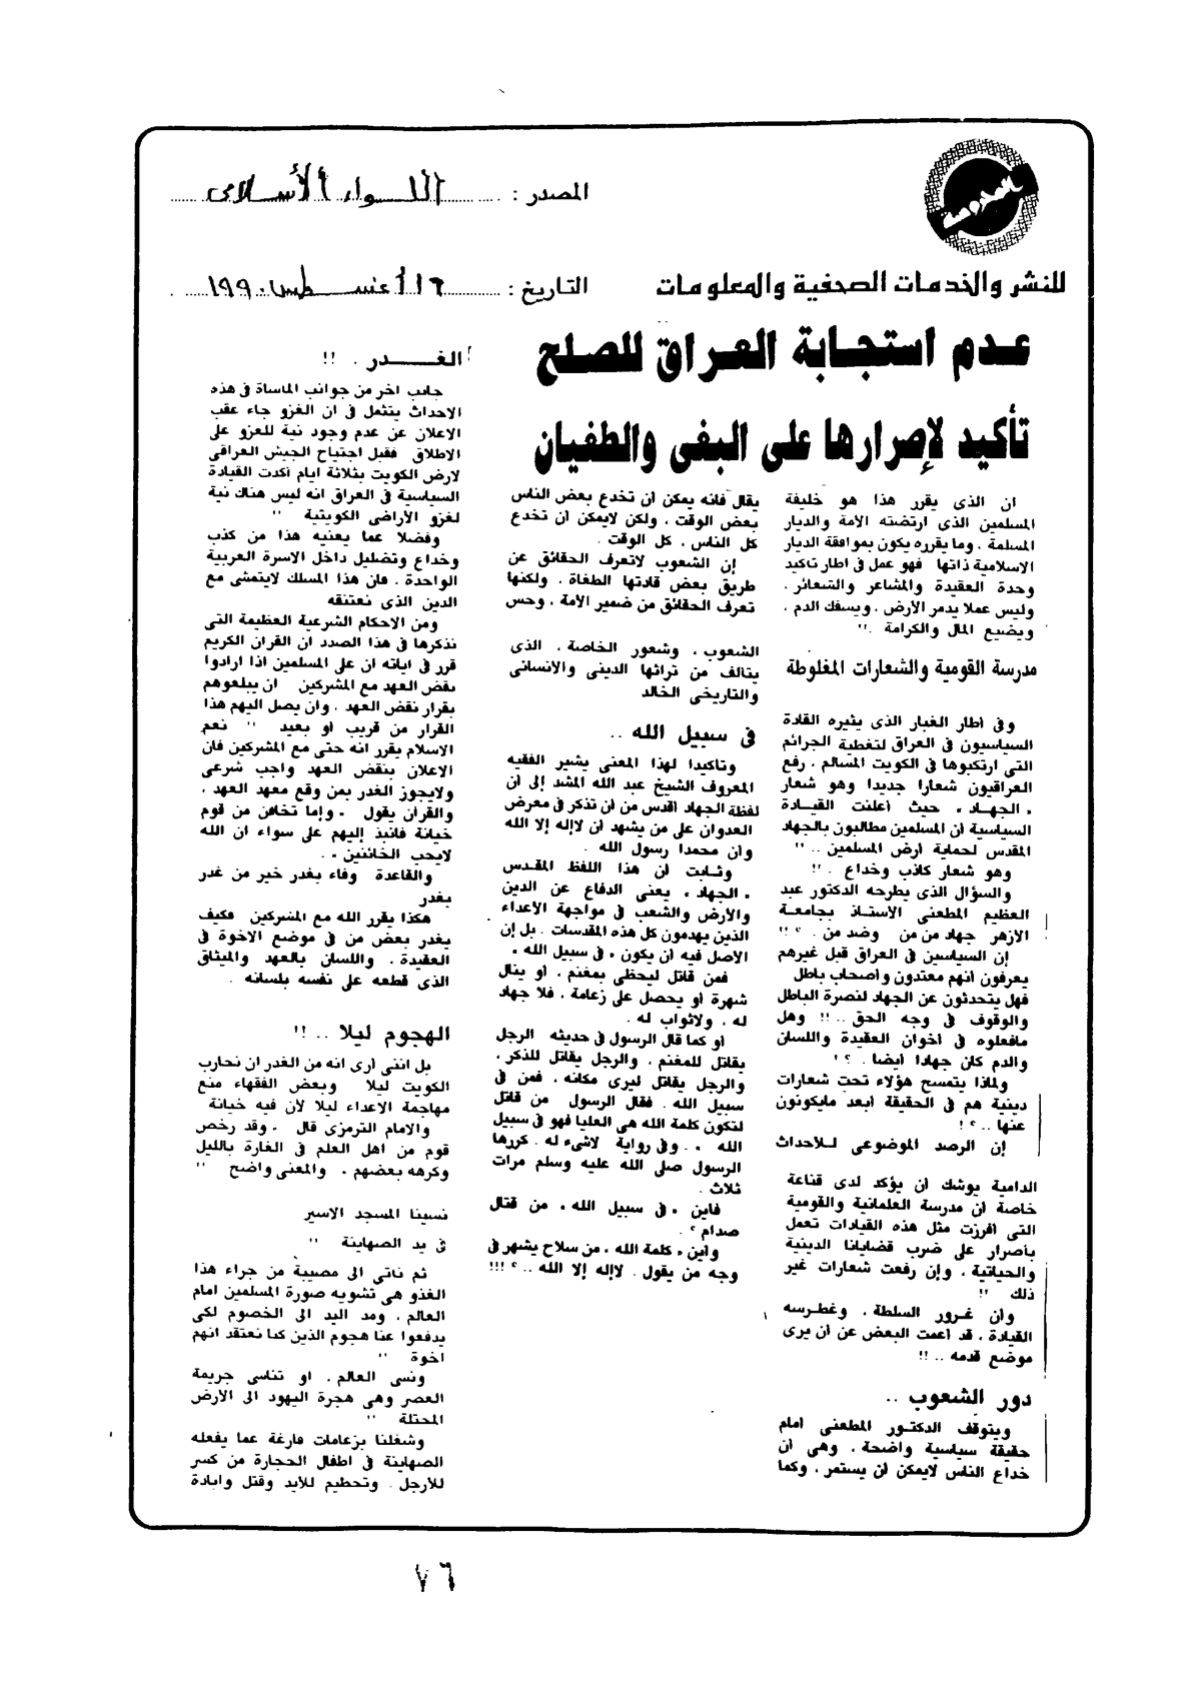 المعلومة
المصدر : اللواء الأسلامى
للنشر والخدمات الصحفية والمعلومات
التاريخ : ١٦ أغسطس ١٩٩٠
عدم استجابة العراق للصلح
تأكيد لإصرارها على البغى والطغيان
ان الذى يقرر هذا هو خليفة
المسلمين الذى ارتضته الأمة والديار
المسلمة ، وما يقرره يكون بموافقة الديار
الاسلامية ذاتها فهو عمل فى اطار تاكيد
وحدة العقيدة والمشاعر والشعائر .
وليس عملا يدمر الأرض ، ويسفك الدم ،
ويضيع المال والكرامة .!!
مدرسة القومية والشعارات المغلوطة
وفى اطار الغبار الذى يثيره القادة
السياسيون فى العراق لتغطية الجرائم
التى ارتكبوها فى الكويت المسالم . رفع
العراقيون شعارا جديدا وهو شعار
، الجهاد ، حيث أعلنت القيادة
السياسية أن المسلمين مطالبون بالجهاد
المقدس لحماية أرض المسلمين .. !!
وهو شعار كاذب وخداع . !!
والسؤال الذى يطرحه الدكتور عبد
العظيم المطعنى الاستاذ بجامعة
الأزهر جهاد من من وضد من . ؟ !!
إن السياسين فى العراق قبل غيرهم
يعرفون أنهم معتدون وأصحاب باطل
فهل يتحدثون عن الجهاد لنصرة الباطل
والوقوف فى وجه الحق .. !! وهل
مافعلوه فى أخوان العقيدة واللسان
والدم كان جهادا أيضا . ؟ !
ولماذا يتمسح هؤلاء تحت شعارات
دينية هم فى الحقيقة أبعد مايكونون
عنها .. ؟ !
إن الرصد الموضوعى للأحداث
الدامية يوشك ان يؤكد لدى قناعة
خاصة أن مدرسة العلمانية والقومية
التى أفرزت مثل هذه القيادات تعمل
بأصرار على ضرب قضايانا الدينية
والحياتية ، وإن رفعت شعارات غير
ذلك !!
وأن غرور السلطة ، وغطرسه
القيادة ، قد أعمت البعض عن أن يرى
موضع قدمه .. !!
دور الشعوب ..
ويتوقف الدكتور المطعنى امام
حقيقة سياسية واضحة ، وهى أن
خداع الناس لايمكن أن يستمر ، وكما
يقال فانه يمكن أن تخدع بعض الناس
بعض الوقت ، ولكن لايمكن أن تخدع
كل الناس ، كل الوقت .
إن الشعوب لاتعرف الحقائق عن
طريق بعض قادتها الطغاة ، ولكنها
تعرف الحقائق من ضمير الأمة ، وحس
الشعوب ، وشعور الخاصة ، الذى
يتالف من تراثها الدينى والانسانى
والتاريخى الخالد
فى سبيل الله ..
وتاكيدا لهذا المعنى يشير الفقيه
المعروف الشيخ عبد الله المشد إلى أن
لفظة الجهاد أقدس من أن تذكر فى معرض
العدوان على من يشهد أن لاإله إلا الله
وأن محمدا رسول الله .
وثابت أن هذا اللفظ المقدس
، الجهاد ، يعنى الدفاع عن الدين
والأرض والشعب فى مواجهة الأعداء
الذين يهدمون كل هذه المقدسات . بل إن
الاصل فيه أن يكون ، فى سبيل الله ،
فمن قاتل ليحظى بمغنم ، أو ينال
شهرة أو يحصل على زعامة ، فلا جهاد
له ، ولاثواب له .
أو كما قال الرسول فى حديثه الرجل
يقاتل للمغنم ، والرجل يقاتل للذكر ،
والرجل يقاتل ليرى مكانه ، فمن فى
سبيل الله . فقال الرسول من قاتل
لتكون كلمة الله هى العليا فهو فى سبيل
الله ، . وفى رواية لاشىء له . كررها
الرسول صلى الله عليه وسلم مرات
ثلاث .
فاين ، فى سبيل الله ، من قتال
صدام ؟ .
وأين ، كلمة الله ، من سلاح يشهر فى
وجه من يقول . لاإله إلا الله .. ؟ !!!
الغدر . !!
جانب آخر من جوانب الماساة فى هذه
الاحداث يتثمل فى ان الغزو جاء عقب
الاعلان عن عدم وجود نية للغزو على
الاطلاق فقبل اجتياح الجيش العراقى
لارض الكويت بثلاثة ايام أكدت القيادة
السياسية فى العراق انه ليس هناك نية
لغزو الأراضى الكويتية !!
وفضلا عما يعنيه هذا من كذب
وخداع وتضليل داخل الاسرة العربية
الواحدة ، فان هذا المسلك لايتمشى مع
الدين الذى نعتنقه
ومن الاحكام الشرعية العظيمة التى
نذكرها فى هذا الصدد ان القران الكريم
قرر فى اياته ان على المسلمين اذا ارادوا
نقض العهد مع المشركين ان يبلغوهم
بقرار نقض العهد ، وان يصل اليهم هذا
القرار من قريب أو بعيد !! نعم
الاسلام يقرر انه حتى مع المشركين فان
الاعلان بنقض العهد واجب شرعى
ولايجوز الغدر بمن وقع معهد العهد ،
والقرآن يقول ، وإما تخافن من قوم
خيانة فانبذ إليهم على سواء ان الله
لايحب الخائنين ، .
والقاعدة وفاء بغدر خير من غدر
بغدر
هكذا يقرر الله مع المشركين فكيف
يغدر بعض من فى موضع الاخوة فى
العقيدة ، واللسان بالعهد والميثاق
الذى قطعه على نفسه بلسانه .
الهجوم ليلا .. !!
بل اننى أرى انه من الغدر ان نحارب
الكويت ليلا وبعض الفقهاء منع
مهاجمة الاعداء ليلا لأن فيه خيانة
والامام الترمزى قال ، وقد رخص
قوم من اهل العلم فى الغارة بالليل
وكرهه بعضهم ، والمعنى واضح !!
نسينا المسجد الاسير
فى يد الصهاينة !!
ثم ناتى الى مصيبة من جراء هذا
الغذو هى تشويه صورة المسلمين امام
العالم ، ومد اليد الى الخصوم لكى
يدفعوا عنا هجوم الذين كنا نعتقد انهم
اخوة !!
ونسى العالم ، او تناسى جريمة
العصر وهى هجرة اليهود الى الأرض
المحتلة !!
وشغلنا بزعامات فارغة عما يفعله
الصهاينة فى اطفال الحجارة من كسر
للأرجل . وتحطيم للأيد وقتل وابادة
٧٦